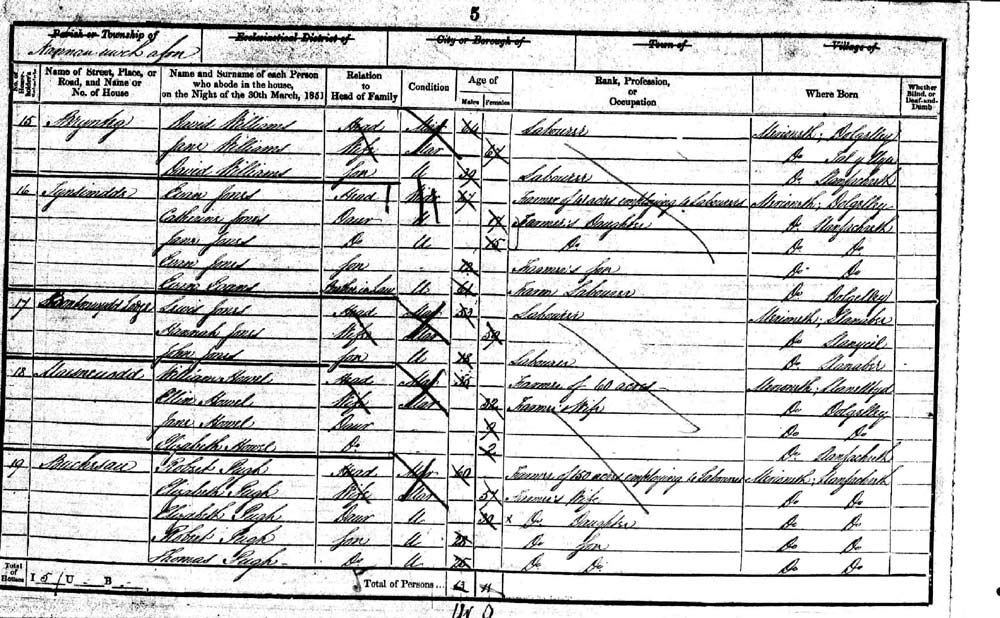 5
Parish or Township of
Ecclesiastical District of
City or Borough of
Town of
Village of
Nannau uwch afon
No. of House-holder's Schedule
Name of Street, Place, or Road, and Name or No. of House
Name and Surname of each Person who abode in the house, on the Night of the 30th March, 1851
Relation to Head of Family
Condition
Age of
Males
Females
Rank, Profession, or Occupation
Where Born
Whether Blind, or Deaf-and-Dumb
15 David Williams Head Mar Labourer Merioneth; Dolgelley
Jane Williams Wife Mar 67 Do
David Williams Son U 29 Labourer Do Llanfachreth
16 Evan Jones Head 67 Farmer of acres employing Labourers Merioneth; Dolgelley
Catherine Jones Daur U 17 Farmer's Daughter Do Llanfachreth
Jane Jones Do U 15 Do Do Do
Evan Jones Son Farmer's Son Do Do
Evan Evans Brother in Law U 61 Farm Labourer Do Dolgelley
17 Lewis Jones Head Mar Labourer Merioneth; Llanaber
Hannah Jones Wife Mar 50 Do Llanycil
John Jones Son U 18 Labourer Do Llanaber
18 William Howel Head Mar Farmer of 60 acres Merioneth;
Elin Howel Wife Mar 32 Farmer's Wife Do Dolgelley
Jane Howel Daur Do Do
Elizabeth Howel Do 2 Do Llanfachreth
19 Robert Pugh Head Mar 60 Farmer of 150 acres employing Labourers Merioneth; Llanfachreth
Elizabeth Pugh Wife Mar 57 Farmer's Wife Do Do
Elizabeth Pugh Daur U 30 x Do Daughter Do Do
Robert Pugh Son U 28 Do Son Do Do
Thomas Pugh Do U 25 Do Do Do Do
Total of Houses I 5 U B
Total of Persons... 13 11